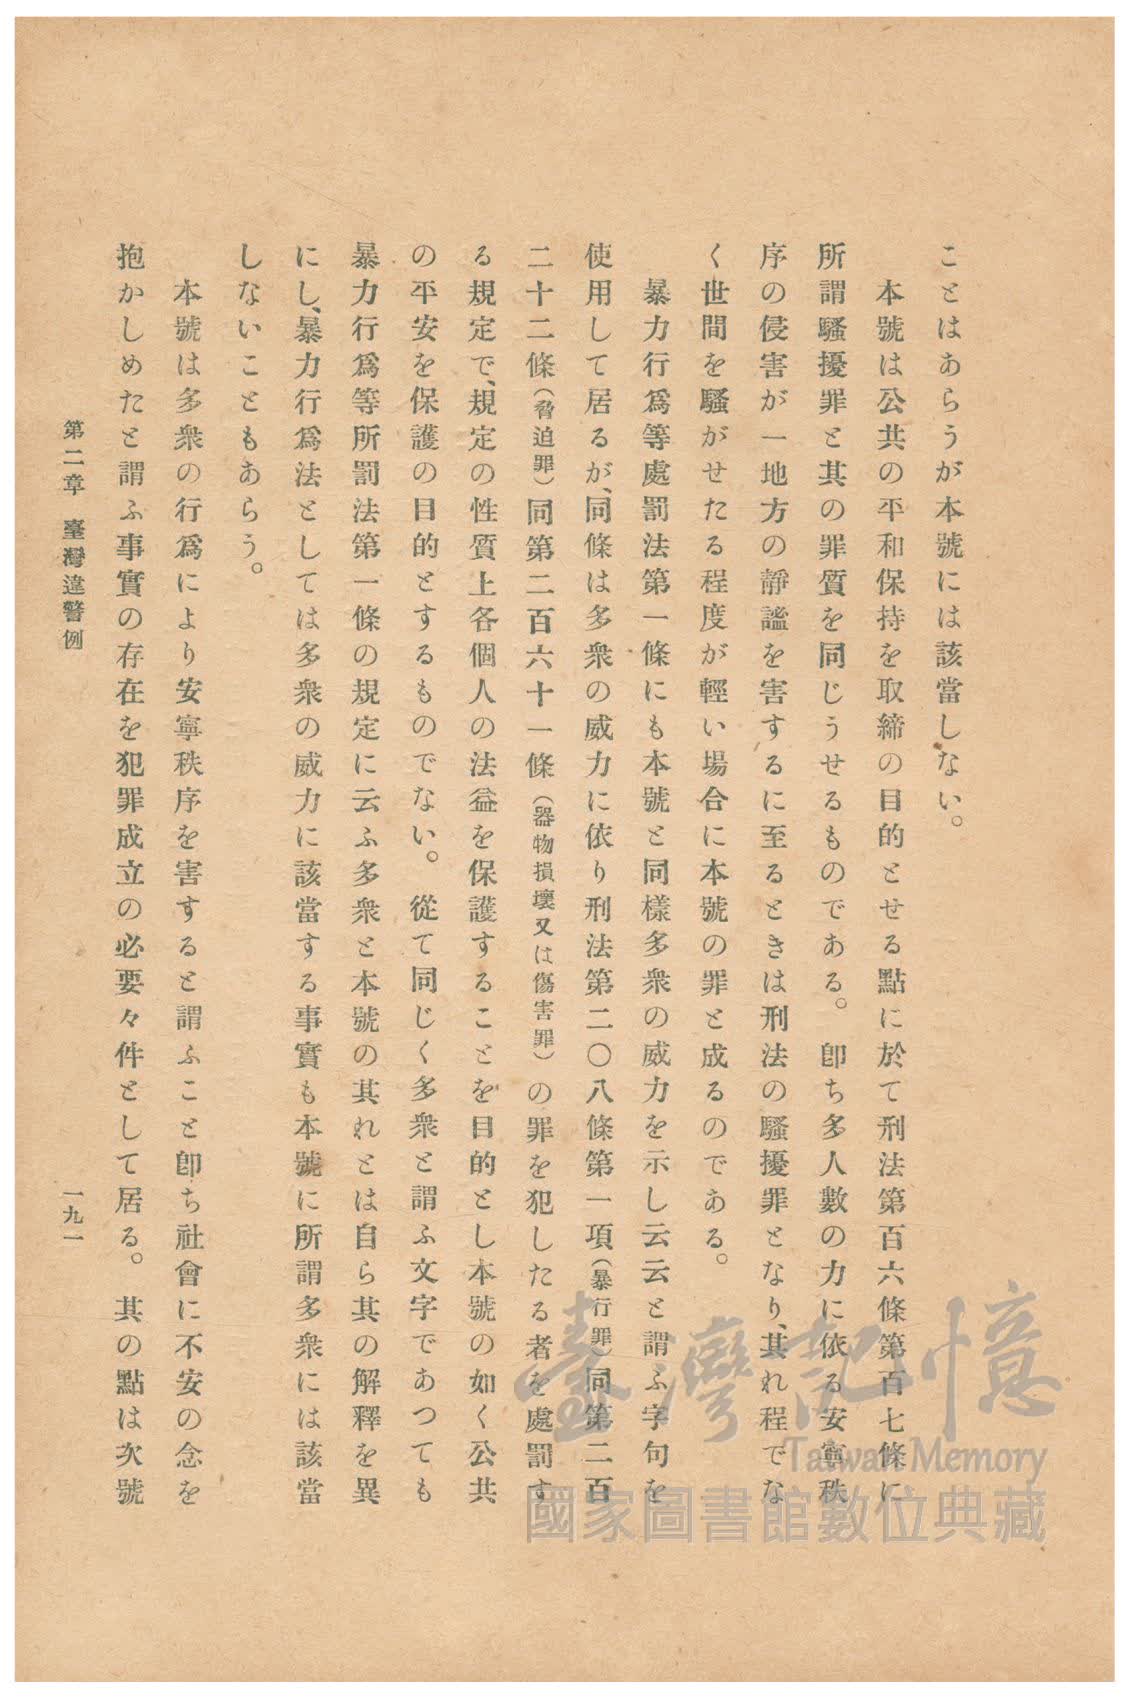 ことはあらうが本號には該當しない。
本號は公共の平和保持を取締の目的とせる點に於て刑法第百六條第百七條に
所謂騷擾罪と其の罪質を同じうせるものである。卽ち多人數の力に依る安寧秩
序の侵害が一地方の靜謐を害するに至るときは刑法の騷擾罪となり、其れ程でな
く世間を騷がせたる程度が輕い場合に本號の罪と成るのである。
暴力行爲等處罰法第一條にも本號と同樣多衆の威力を示し云云と謂ふ字句を
使用して居るが、同條は多衆の威力に依り刑法第二〇八條第一項（暴行罪）同第二百
二十二條（脅迫罪）同第二百六十一條（器物損壞又は傷害罪）の罪を犯したる者を處罰す
る規定で、規定の性質上各個人の法益を保護することを目的とし本號の如く公共
の平安を保護の目的とするものでない。從て同じく多衆と謂ふ文字であつても
暴力行爲等所罰法第一條の規定に云ふ多衆と本號の其れとは自ら其の解釋を異
にし、暴力行爲法としては多衆の威力に該當する事實も本號に所謂多衆には該當
しないこともあらう。
本號は多衆の行爲により安寧秩序を害すると謂ふこと卽ち社會に不安の念を
抱かしめたと謂ふ事實の存在を犯罪成立の必要々件として居る。其の點は次號
第二章　臺灣違警例
一九一
臺灣記憶
Taiwan Memory
國家圖書館數位典藏